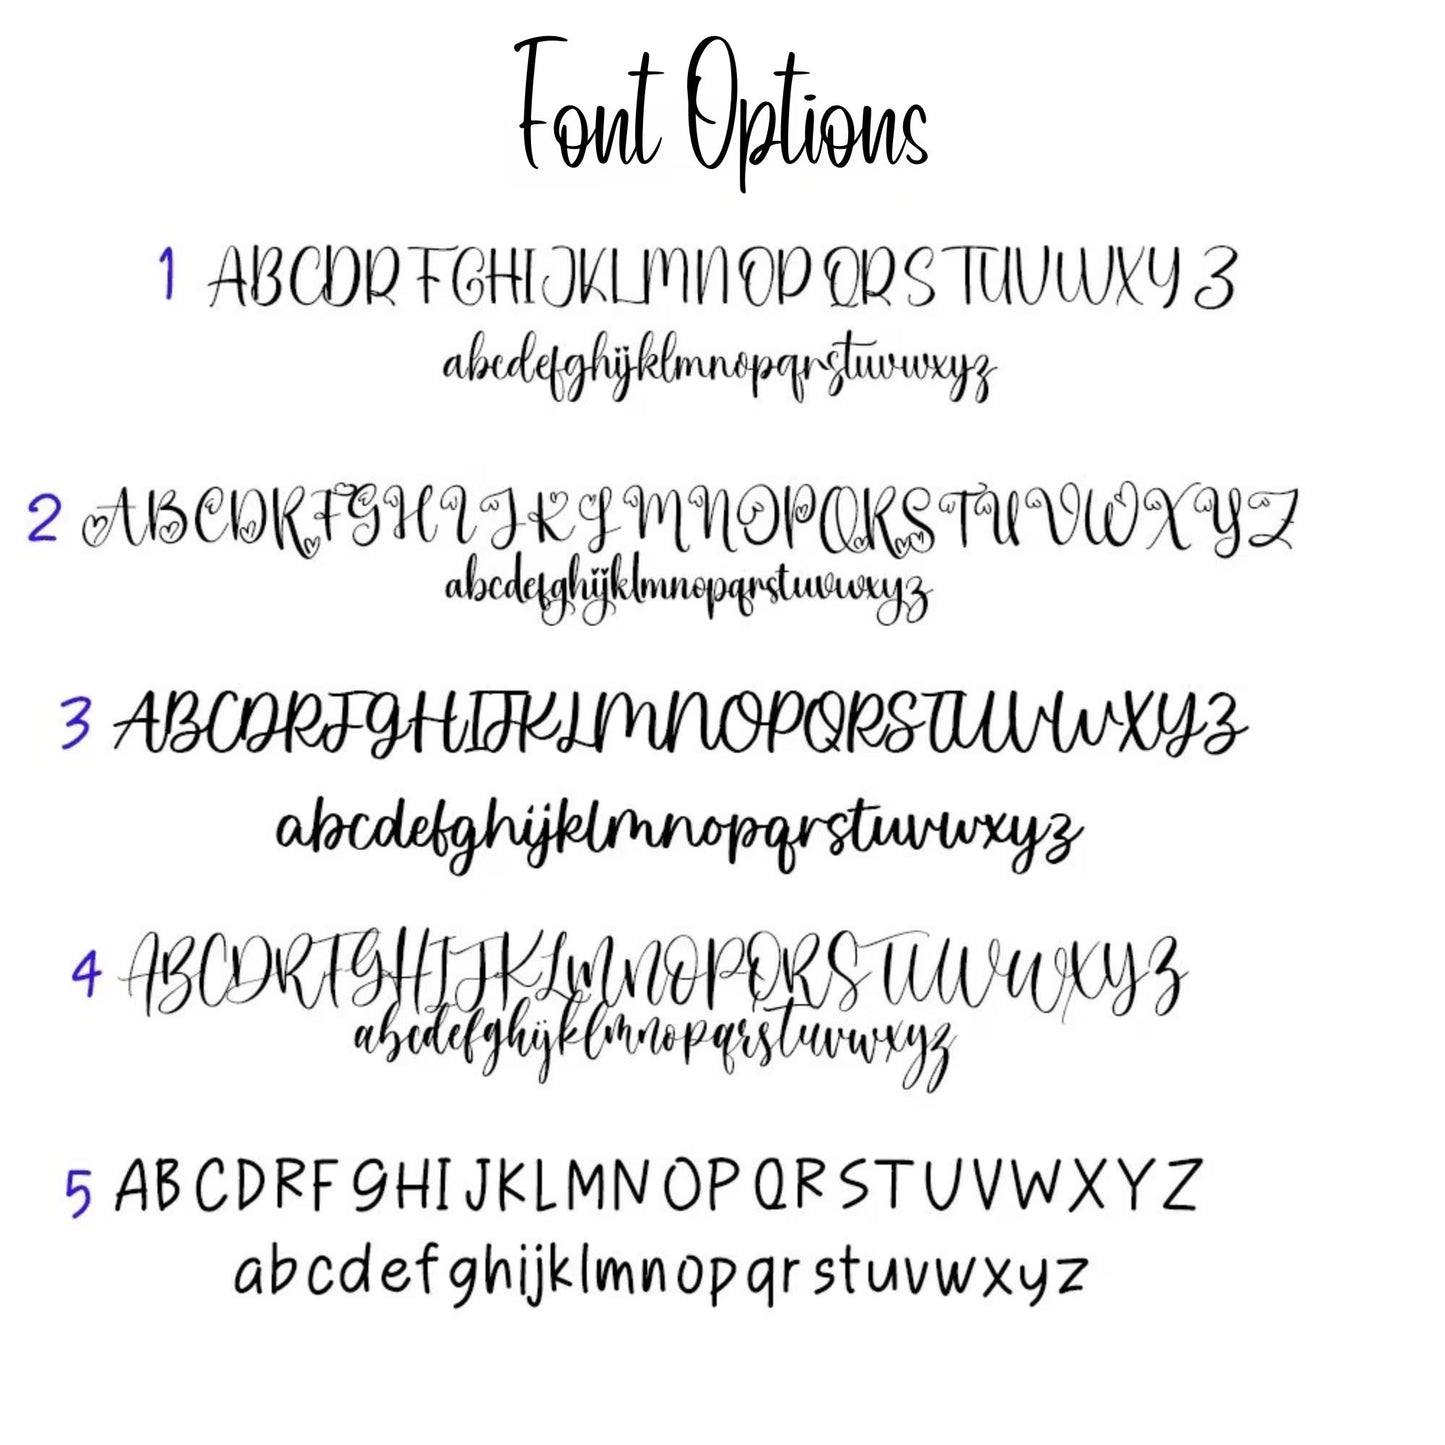 Font Options
1 ABCDRFGHIJKLMNOPQRSTUVWXYZ
abcdefghijklmnopqrstuvwxyz
2 ABCDRFGHIJKLMNOPQRSTUVWXYZ
abcdefghijklmnopqrstuvwxyz
3 ABCDRFGHIJKLMNOPQRSTUVWXYZ
abcdefghijklmnopqrstuvwxyz
4 ABCDRFGHIJKLMNOPQRSTUVWXYZ
abcdefghijklmnopqrstuvwxyz
5 ABCDRFGHIJKLMNOPQRSTUVWXYZ
abcdefghijklmnopqrstuvwxyz